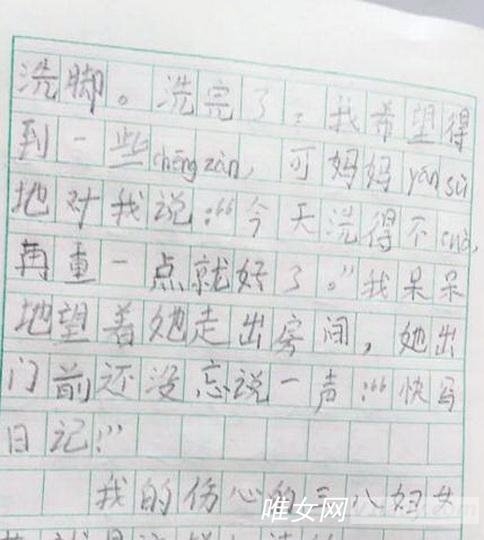 洗脚。洗完了:我希望得
到一些chēngzàn,可妈妈yánsù
地对我说:“今天洗得不cuò,
再重一点就好了。”我呆呆
地望着她走出房间,她出
门前还没忘说一声:“快写
日记!”
我的伤心的三八妇女
唯女网